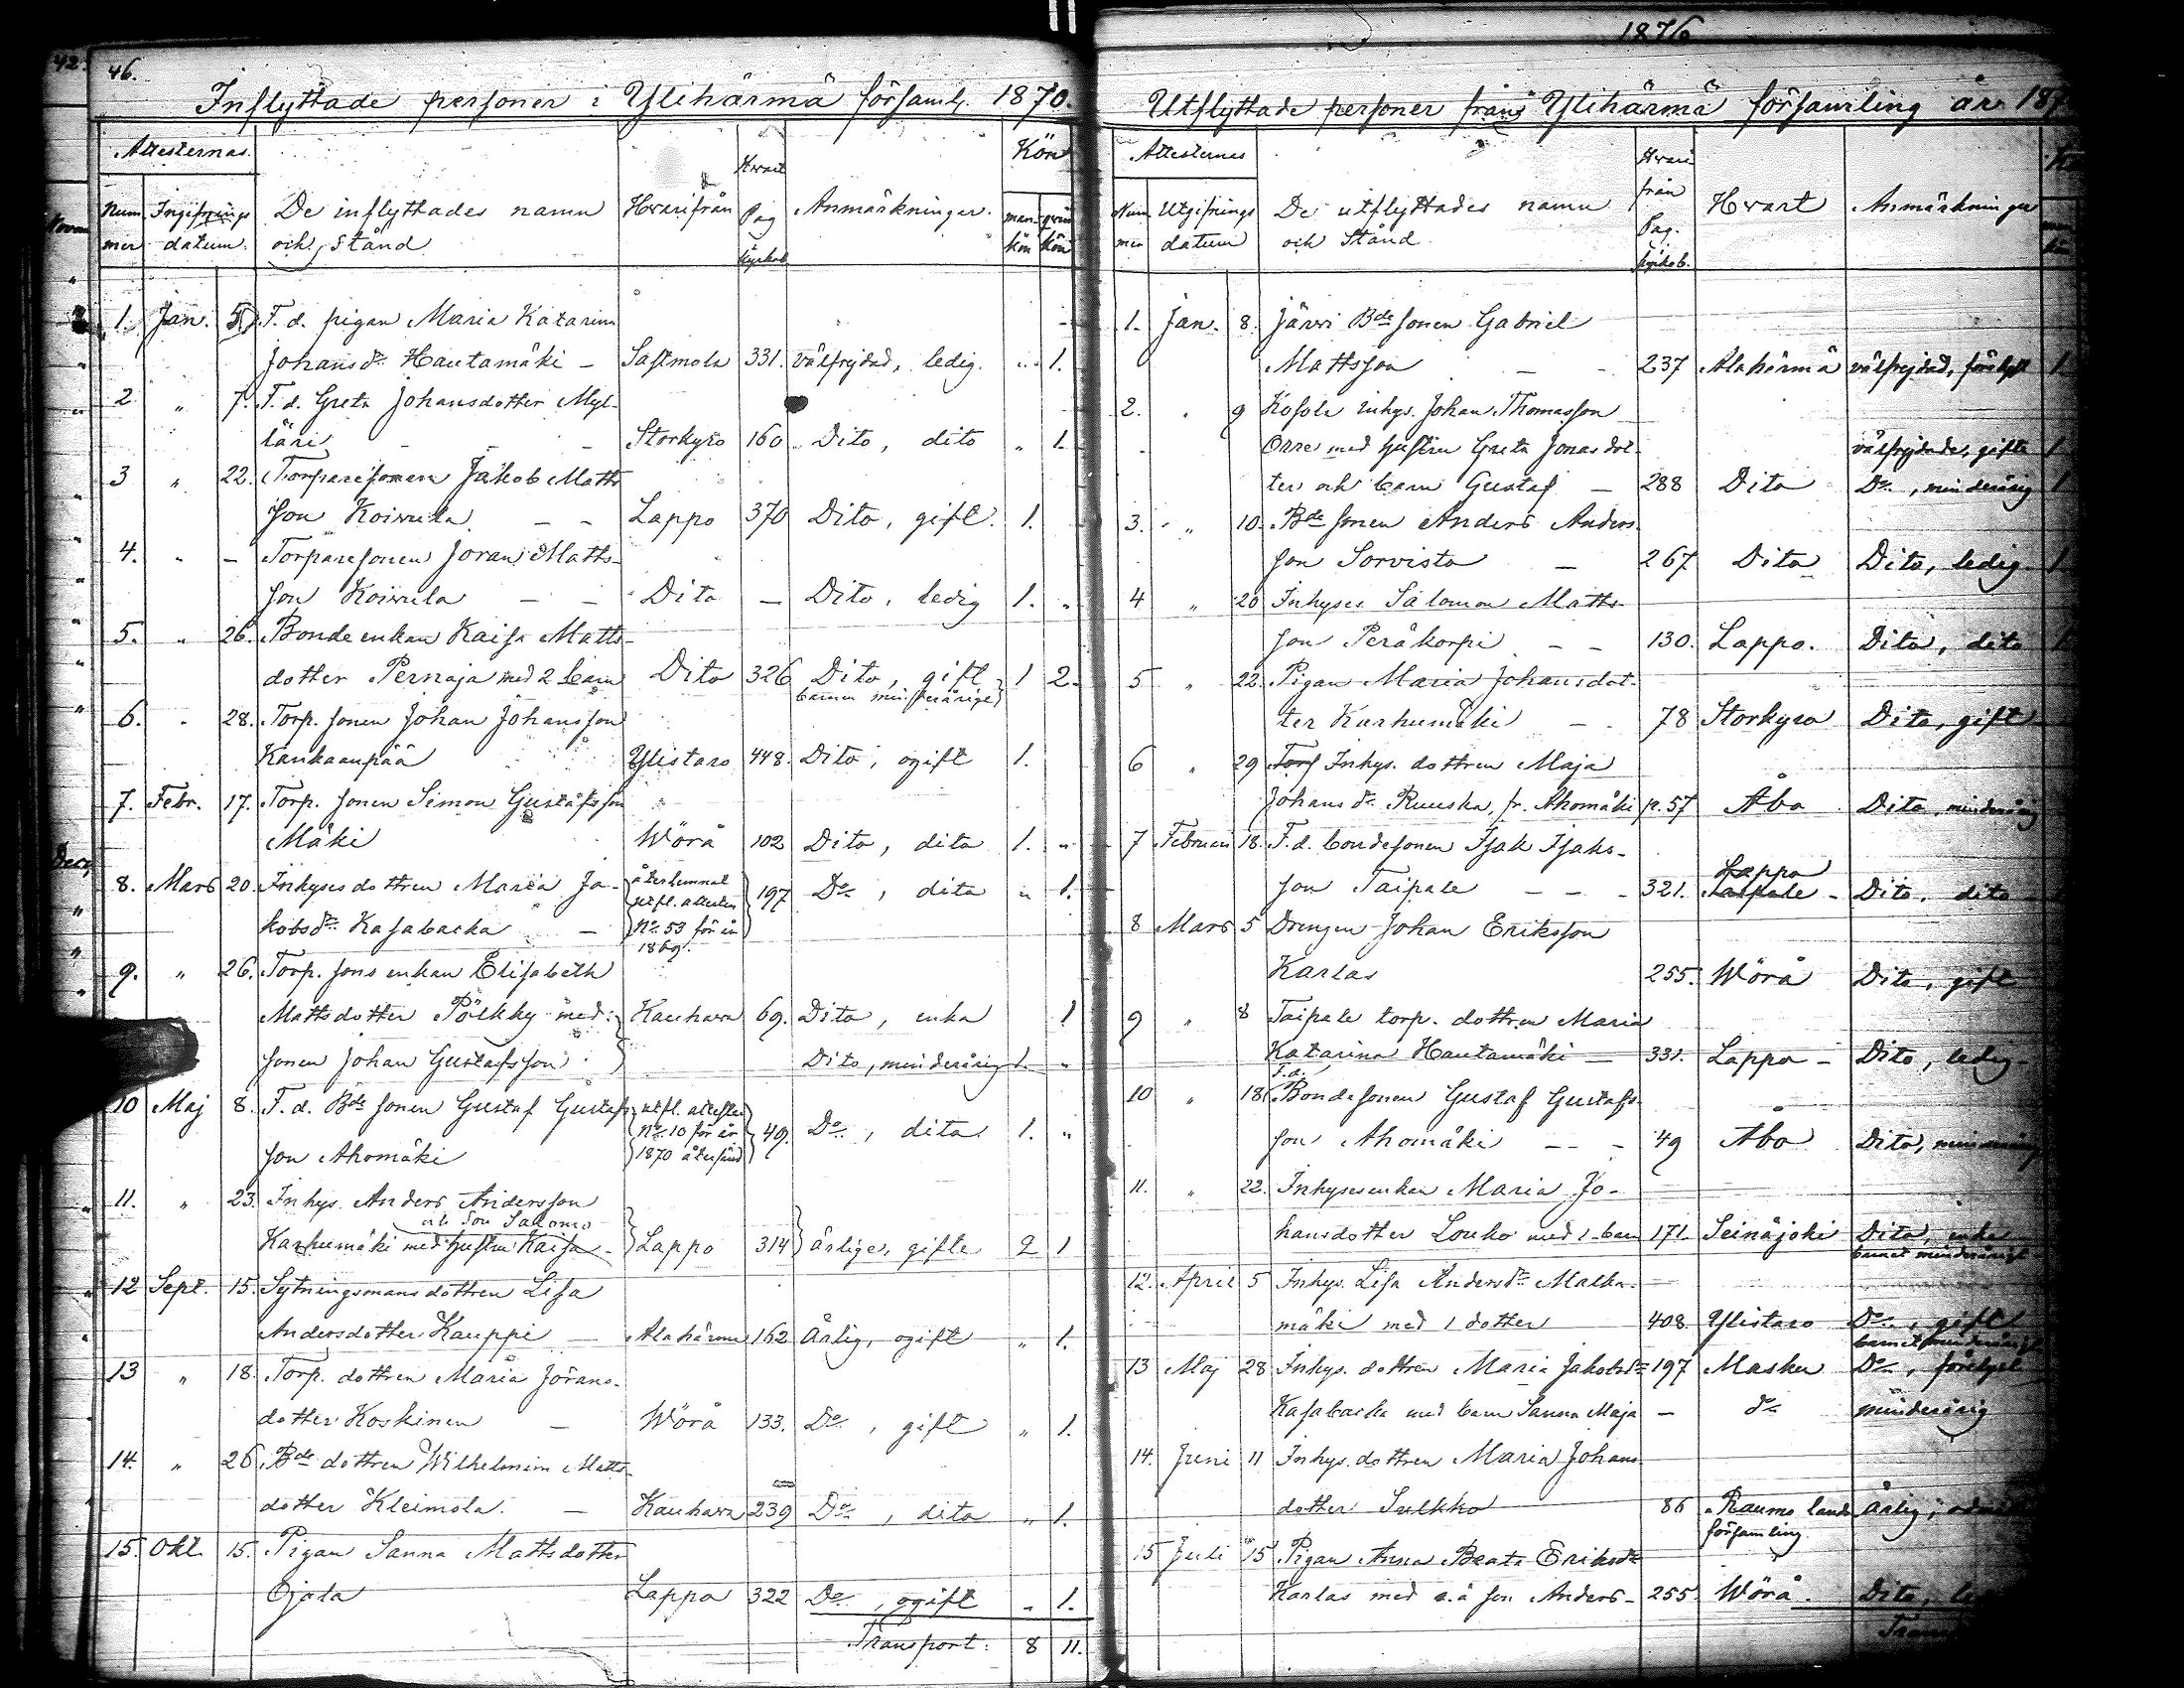 46.
Inflyttade personer i Ylihärmä församl. 1870.
Attesternas
Nummer
Ingifnings datum
De inflyttades namn och stånd
Hvarifrån
Hvart Pag. kyrkob.
Anmärkningar.
Kön
mankön
qvinkön
1. Jan. 5. F. d. pigan Maria Katarina
Johansdr Hautamäki – Sastmola 331. välfrejdad, ledig. „ 1.
2 „ 7. F. d. Greta Johansdotter Myl-
läri – – Storkyro 160 Dito, dito „ 1.
3 „ 22. Torparesonen Jakob Matts
son Koivula – – Lappo 370 Dito, gift. 1.
4. „ – Torparesonen Joran Matts-
son Koivula – – Dito – Dito, ledig 1. „
5. „ 26. Bonde enkan Kaisa Matts-
dotter Pernaja med 2 barn Dito 326 Dito, gift, 1 2.
barnen minderårige
6. „ 28. Torp. sonen Johan Johansson
Kankaanpää Ylistaro 448. Dito, ogift 1.
7. Febr. 17. Torp. sonen Simon Gustafsson
Mäki Wörå 102 Dito, dito 1. „
8. Mars 20. Inhyses dottren Maria Ja-
kobsdr Kasabacka – återlemnat utfl. attesten No 53 för år 1869. 197 Do, dito „ 1.
9. „ 26. Torp. sons enkan Elisabeth
Mattsdotter Pölkky med Kauhava 69. Dito, enka 1
sonen Johan Gustafsson Dito, minderårig 1. „
10 Maj 8. F. d. Bde sonen Gustaf Gustafs
son Ahomäki utfl. attesten No 10 för år 1870 återsänd 49. Do, dito 1. „
11. „ 23. Inhys. Anders Andersson
och son Salomo
Karhumäki med hustru Kaisa – Lappo 314 ärlige, gifte 2 1
12 Sept. 15. Sytningsmans dottren Lisa
Andersdotter Kauppi – Alahärmä 162 Ärlig, ogift „ 1.
13 „ 18. Torp. dottren Maria Jörans-
dotter Koskinen – Wörå 133. Do, gift „ 1.
14. „ 26 Bde dottren Wilhelmina Matts-
dotter Kleimola. – Kauhava 239 Do, dito „ 1.
15. Okt. 15. Pigan Sanna Mattsdotter
Ojala Lappo 322 Do, ogift „ 1.
Transport: 8 11.
1876
Utflyttade personer från Ylihärmä församling år 187
Attesternes
Nummer
Utgifnings datum
De utflyttades namn och stånd
Hvarifrån Pag. kyrkob.
Hvart
Anmärkningar
1. Jan. 8. Järvi Bde sonen Gabriel
Mattsson – – 237 Alahärmä välfrejdad, 1
2. „ 9 Kosola inhys. Johan Thomasson
Orre med hustru Greta Jonasdot- välfrejdade, gifte 1
ter och barn Gustaf – 288 Dito Do, minderårig 1
3. „ 10. Bde sonen Anders Anders-
son Sorvisto – 267 Dito Dito, ledig 1
4 „ 20 Inhyses Salomon Matts-
son Peräkorpi – – 130. Lappo. Dito, dito
5 „ 22. Pigan Maria Johansdot-
ter Karhumäki – 78 Storkyro Dito, gift
6 „ 29 Torp Inhys. dottren Maja
Johansdr Ruuska, fr. Ahomäki p. 57 Åbo Dito, minderårig
7 Februari 18. F. d. bondesonen Isak Isaks-
Lappo
son Taipale – – 321. Taipale – Dito, dito
8 Mars 5 Drengen Johan Eriksson
Karlas 255. Wörå Dito, gift
9 „ 8 Taipale torp. dottren Maria
Katarina Hautamäki – 331. Lappo – Dito, ledig
F.d.
10 „ 18 Bondesonen Gustaf Gustafs-
son Ahomäki – – 49 Åbo Dito, minderårig
11. „ 22. Inhyses enkan Maria Jo-
hansdotter Louko med 1 barn 171. Seinäjoki Dito, enka
barnet minderårigt
12. April 5 Inhys. Lisa Andersdr Malka-
mäki med 1 dotter 408. Ylistaro Do, gift
barnet minderårigt
13 Maj 28 Inhys. dottren Maria Jakobsdr 197 Masku Do,
Kasabacka med barn Sanna Maja – do minderårig
14. Juni 11 Inhys. dottren Maria Johans
dotter Sulkko 86 Raumo lands församling Ärlig,
15 Juli 15 Pigan Anna Beata Eriksdr
Karlas med o.ä son Anders – 255. Wörå. Dito,